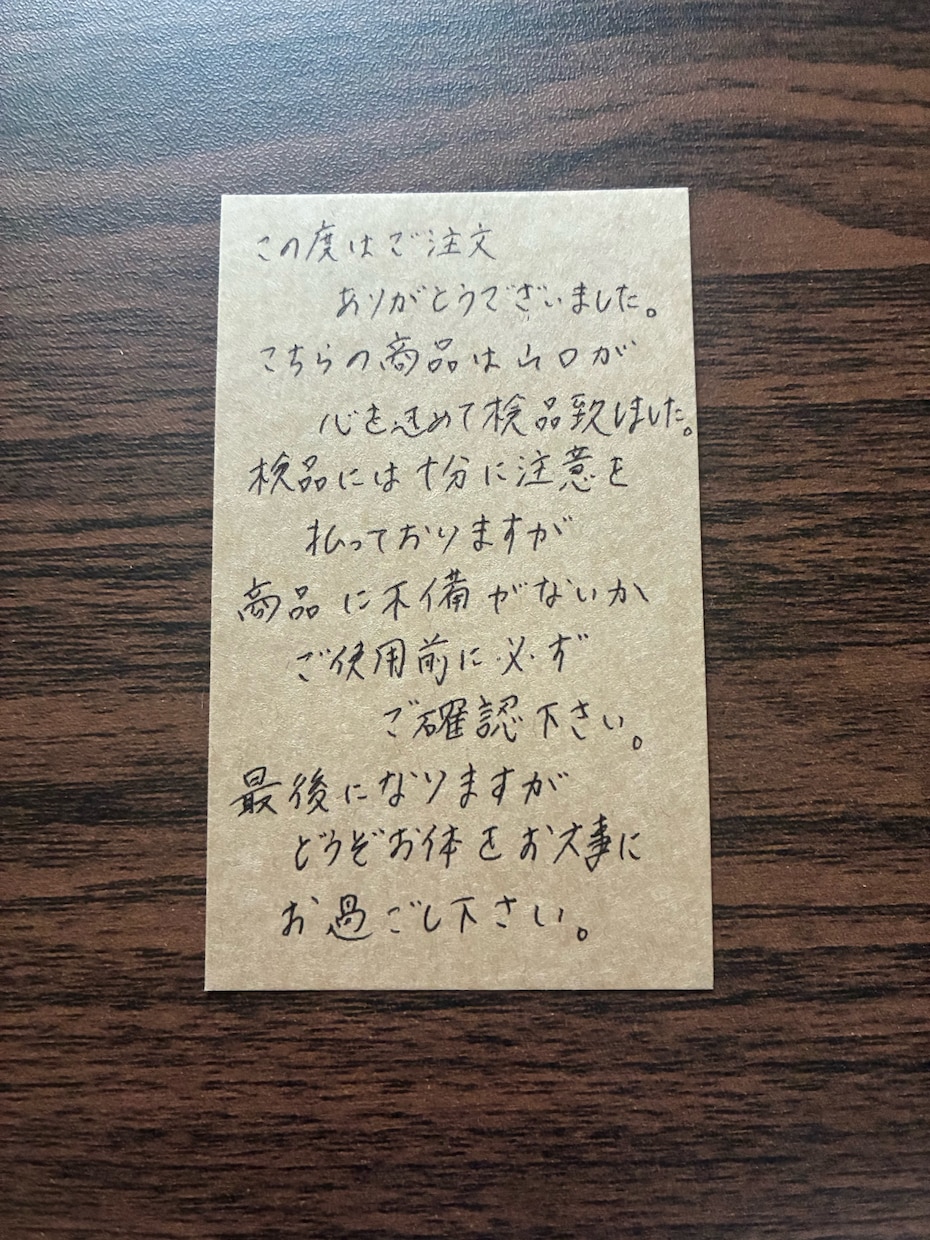 この度はご注文
ありがとうございました。
こちらの商品は山口が
心を込めて検品致しました。
検品には十分に注意を
払っておりますが
商品に不備がないか
ご使用前に必ず
ご確認下さい。
最後になりますが
どうぞお体をお大事に
お過ごし下さい。